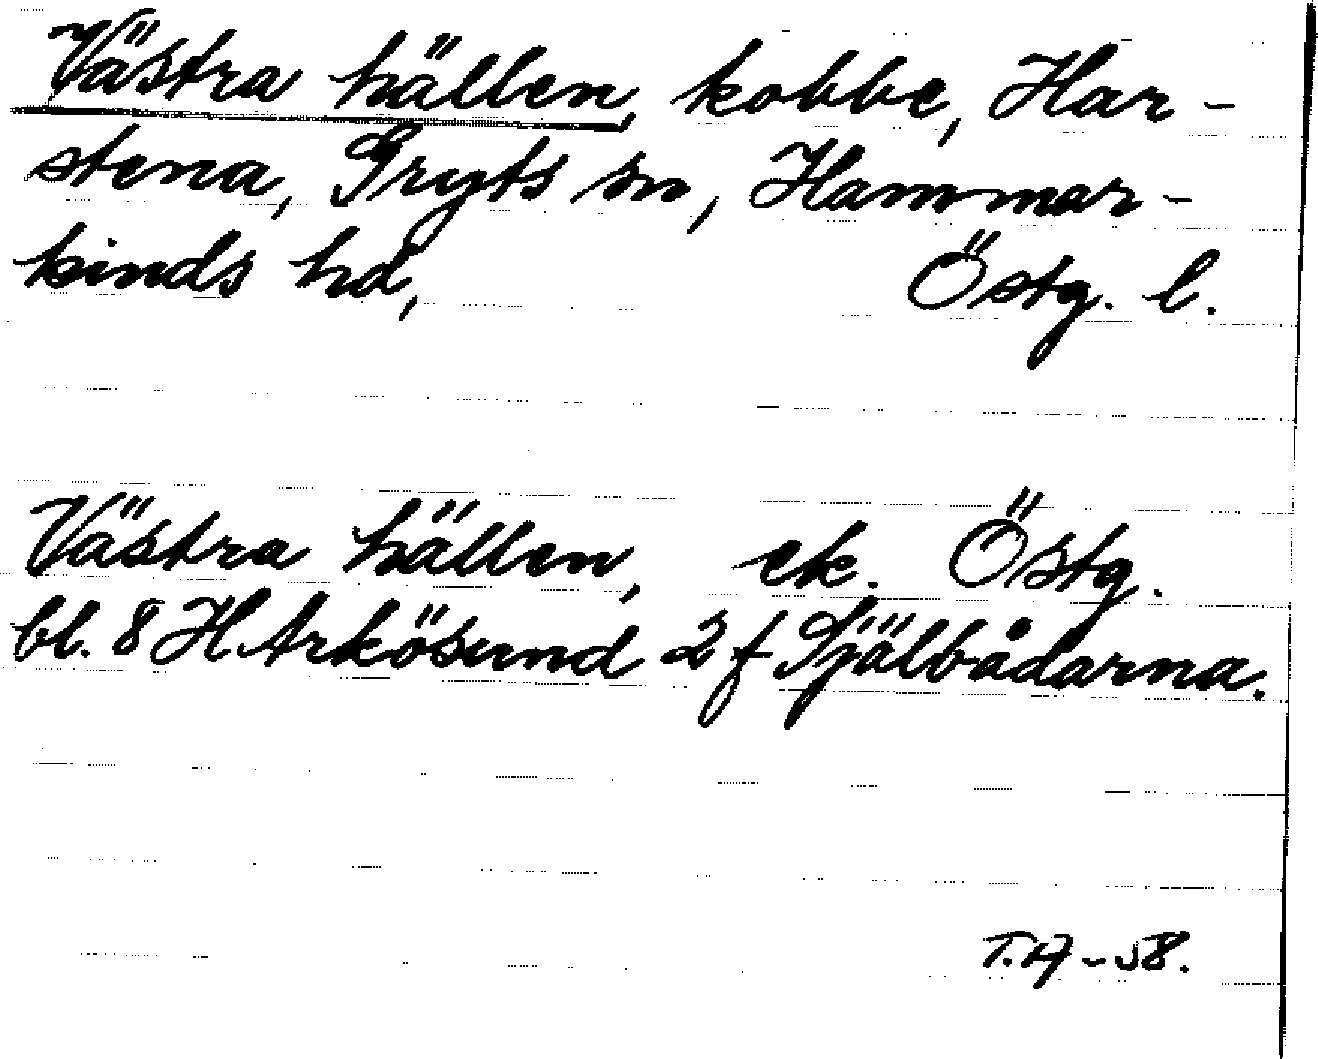 Västra hällen, kobbe, Har-
stena, Gryts sn, Hammar-
kinds hd, Östg. l.
Västra hällen, ek. Östg.
bl. 8 H Arkösund 2 f Själbådarna.
T.A-58.